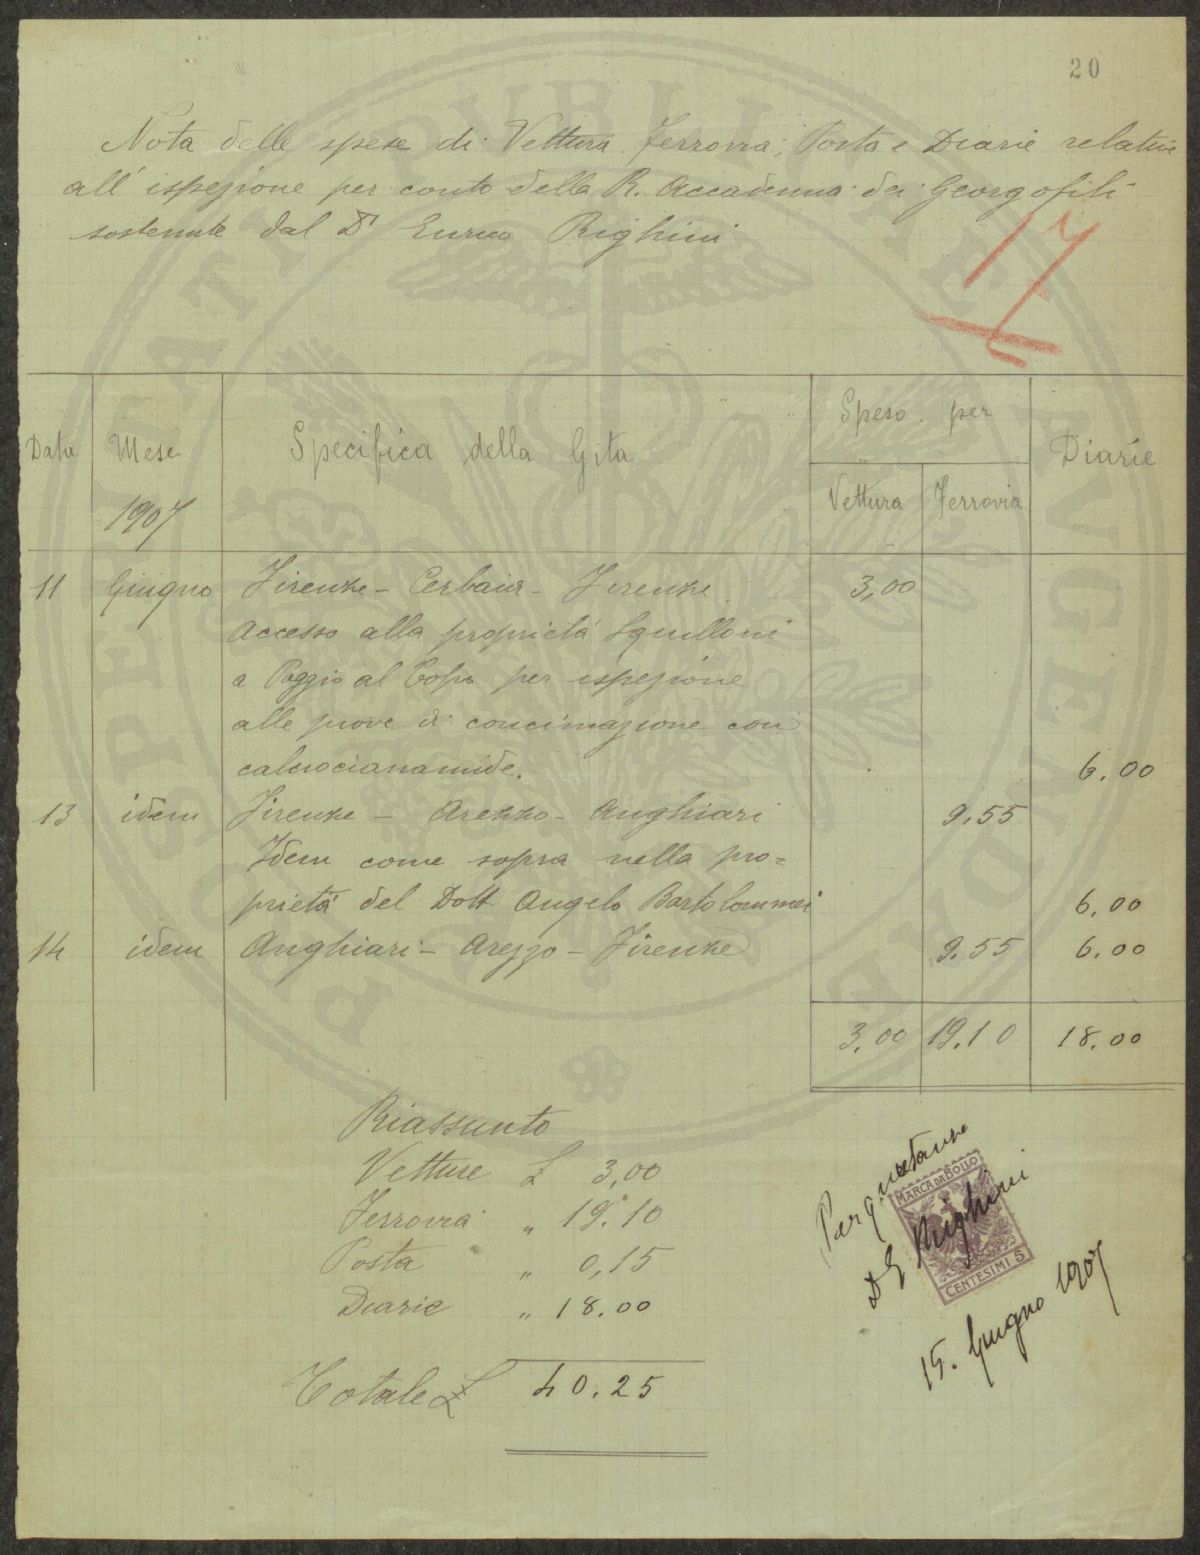 20
Nota delle spese di Vettura, Ferrovia, Posta e Diarie relative
all'ispezione per conto della R. Accademia dei Georgofili
sostenute dal Dr Enrico Righini
17
Data
Mese
1907
Specifica della Gita
Speso per
Vettura
Ferrovia
Diarie
11 Giugno Firenze - Cerbaia - Firenze 3,00
Accesso alla proprietà Squilloni
a Poggio al per ispezione
alle prove di concimazione con
calciocianamide. 6.00
13 idem Firenze - Arezzo - Anghiari 9.55
Idem come sopra nella pro=
prietà del Dott Angelo Bartolommei 6.00
14 idem Anghiari - Arezzo - Firenze 9.55 6.00
3,00 19.10 18.00
Riassunto
Vetture £ 3,00
Ferrovia " 19.10
Posta " 0,15
Diarie " 18.00
Totale £ 40.25
Per quietanza
MARCA DA BOLLO
D E Righini
CENTESIMI 5
15. Giugno 1907
PROSPERITATI PUBLICAE AUGENDAE